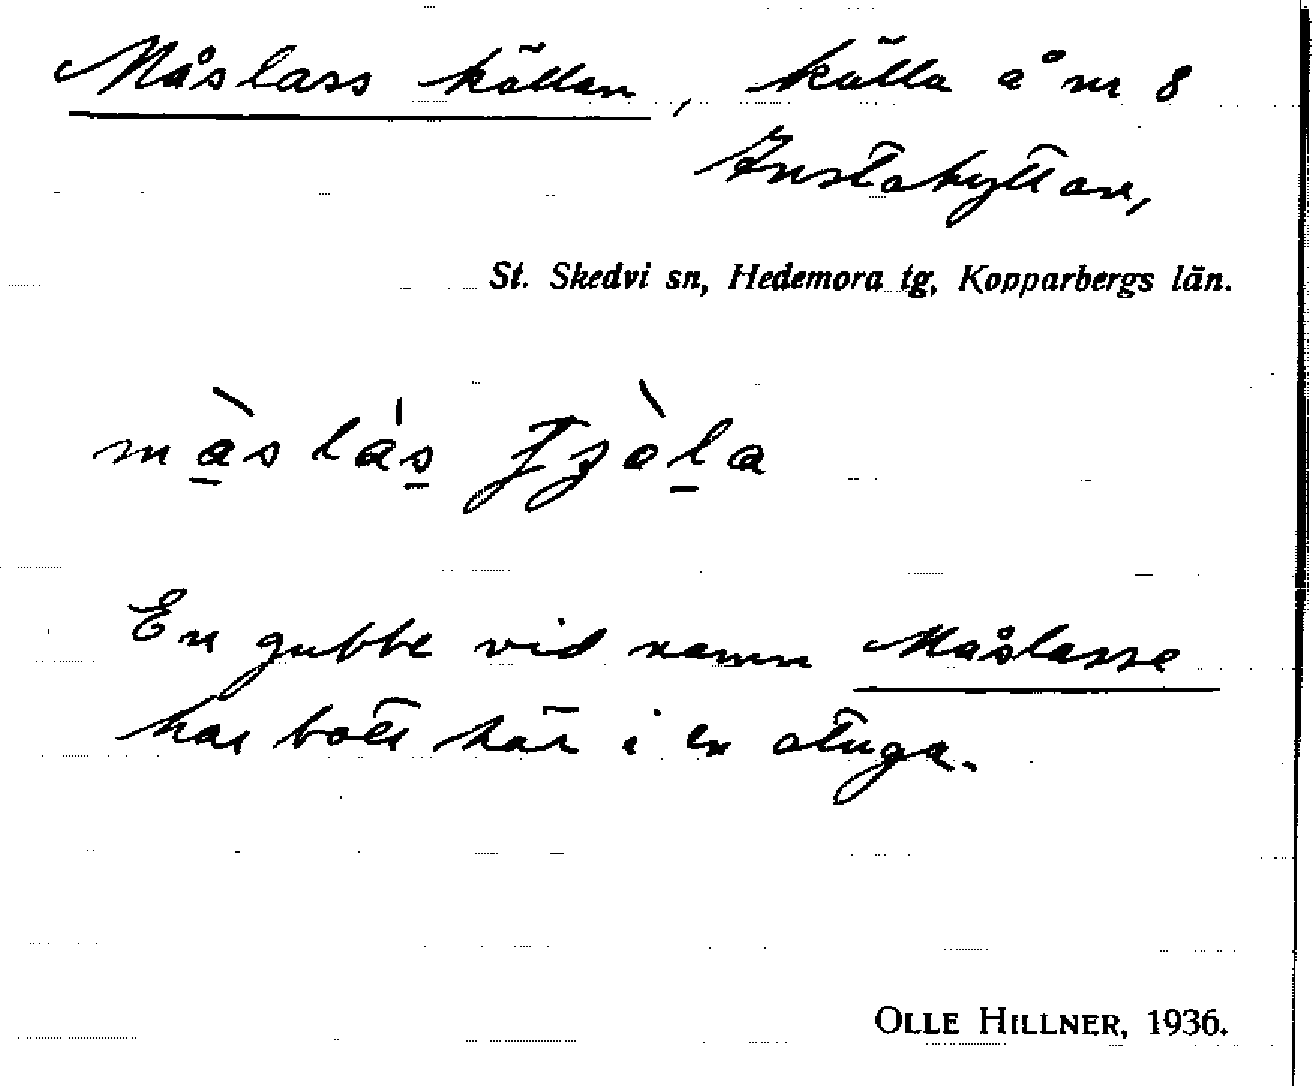 Måslass källan, källa å nr 8
Smedjehyttan,
St. Skedvi sn, Hedemora tg, Kopparbergs län.
En gubbe vid namn Måslasse
har bott här i en stuga.
OLLE HILLNER, 1936.